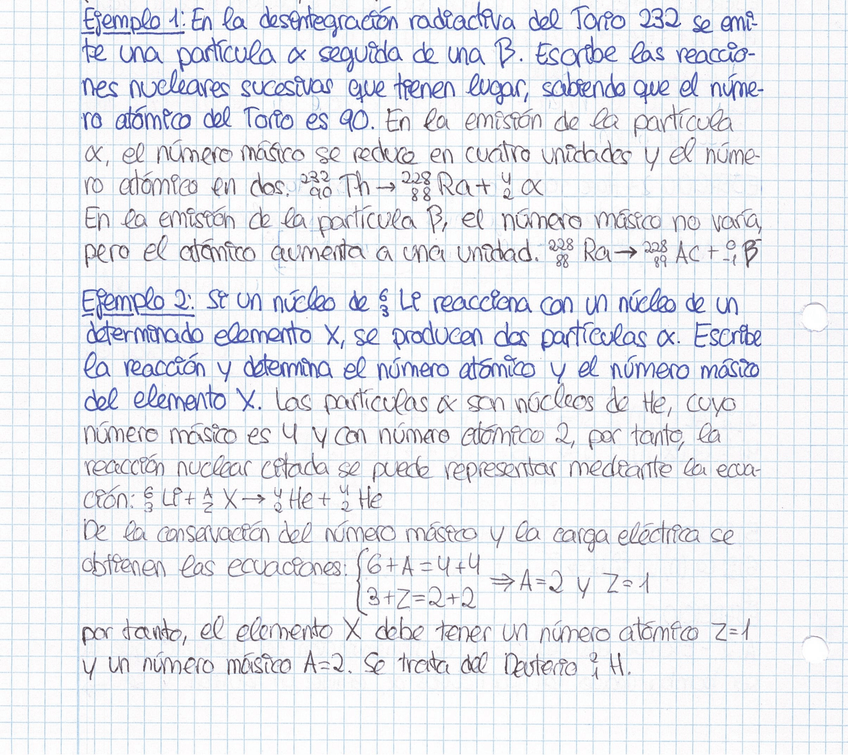 Ejemplo 1: En la desintegración radiactiva del Torio 232 se emi-
te una partícula α seguida de una β. Escribe las reaccio-
nes nucleares sucesivas que tienen lugar, sabiendo que el núme-
ro atómico del Torio es 90. En la emisión de la partícula
α, el número másico se reduce en cuatro unidades y el núme-
ro atómico en dos. ²³²₉₀Th → ²²⁸₈₈Ra + ⁴₂α
En la emisión de la partícula β, el número másico no varía,
pero el atómico aumenta a una unidad. ²²⁸₈₈Ra → ²²⁸₈₉Ac + ⁰₋₁β
Ejemplo 2: Si un núcleo de ⁶₃Li reacciona con un núcleo de un
determinado elemento X, se producen dos partículas α. Escribe
la reacción y determina el número atómico y el número másico
del elemento X. Las partículas α son núcleos de He, cuyo
número másico es 4 y con número atómico 2, por tanto, la
reacción nuclear citada se puede representar mediante la ecua-
ción: ⁶₃Li + ᴬ_Z X → ⁴₂He + ⁴₂He
De la conservación del número másico y la carga eléctrica se
obtienen las ecuaciones: { 6+A=4+4
3+Z=2+2 ⇒ A=2 y Z=1
por tanto, el elemento X debe tener un número atómico Z=1
y un número másico A=2. Se trata del Deuterio ²₁H.